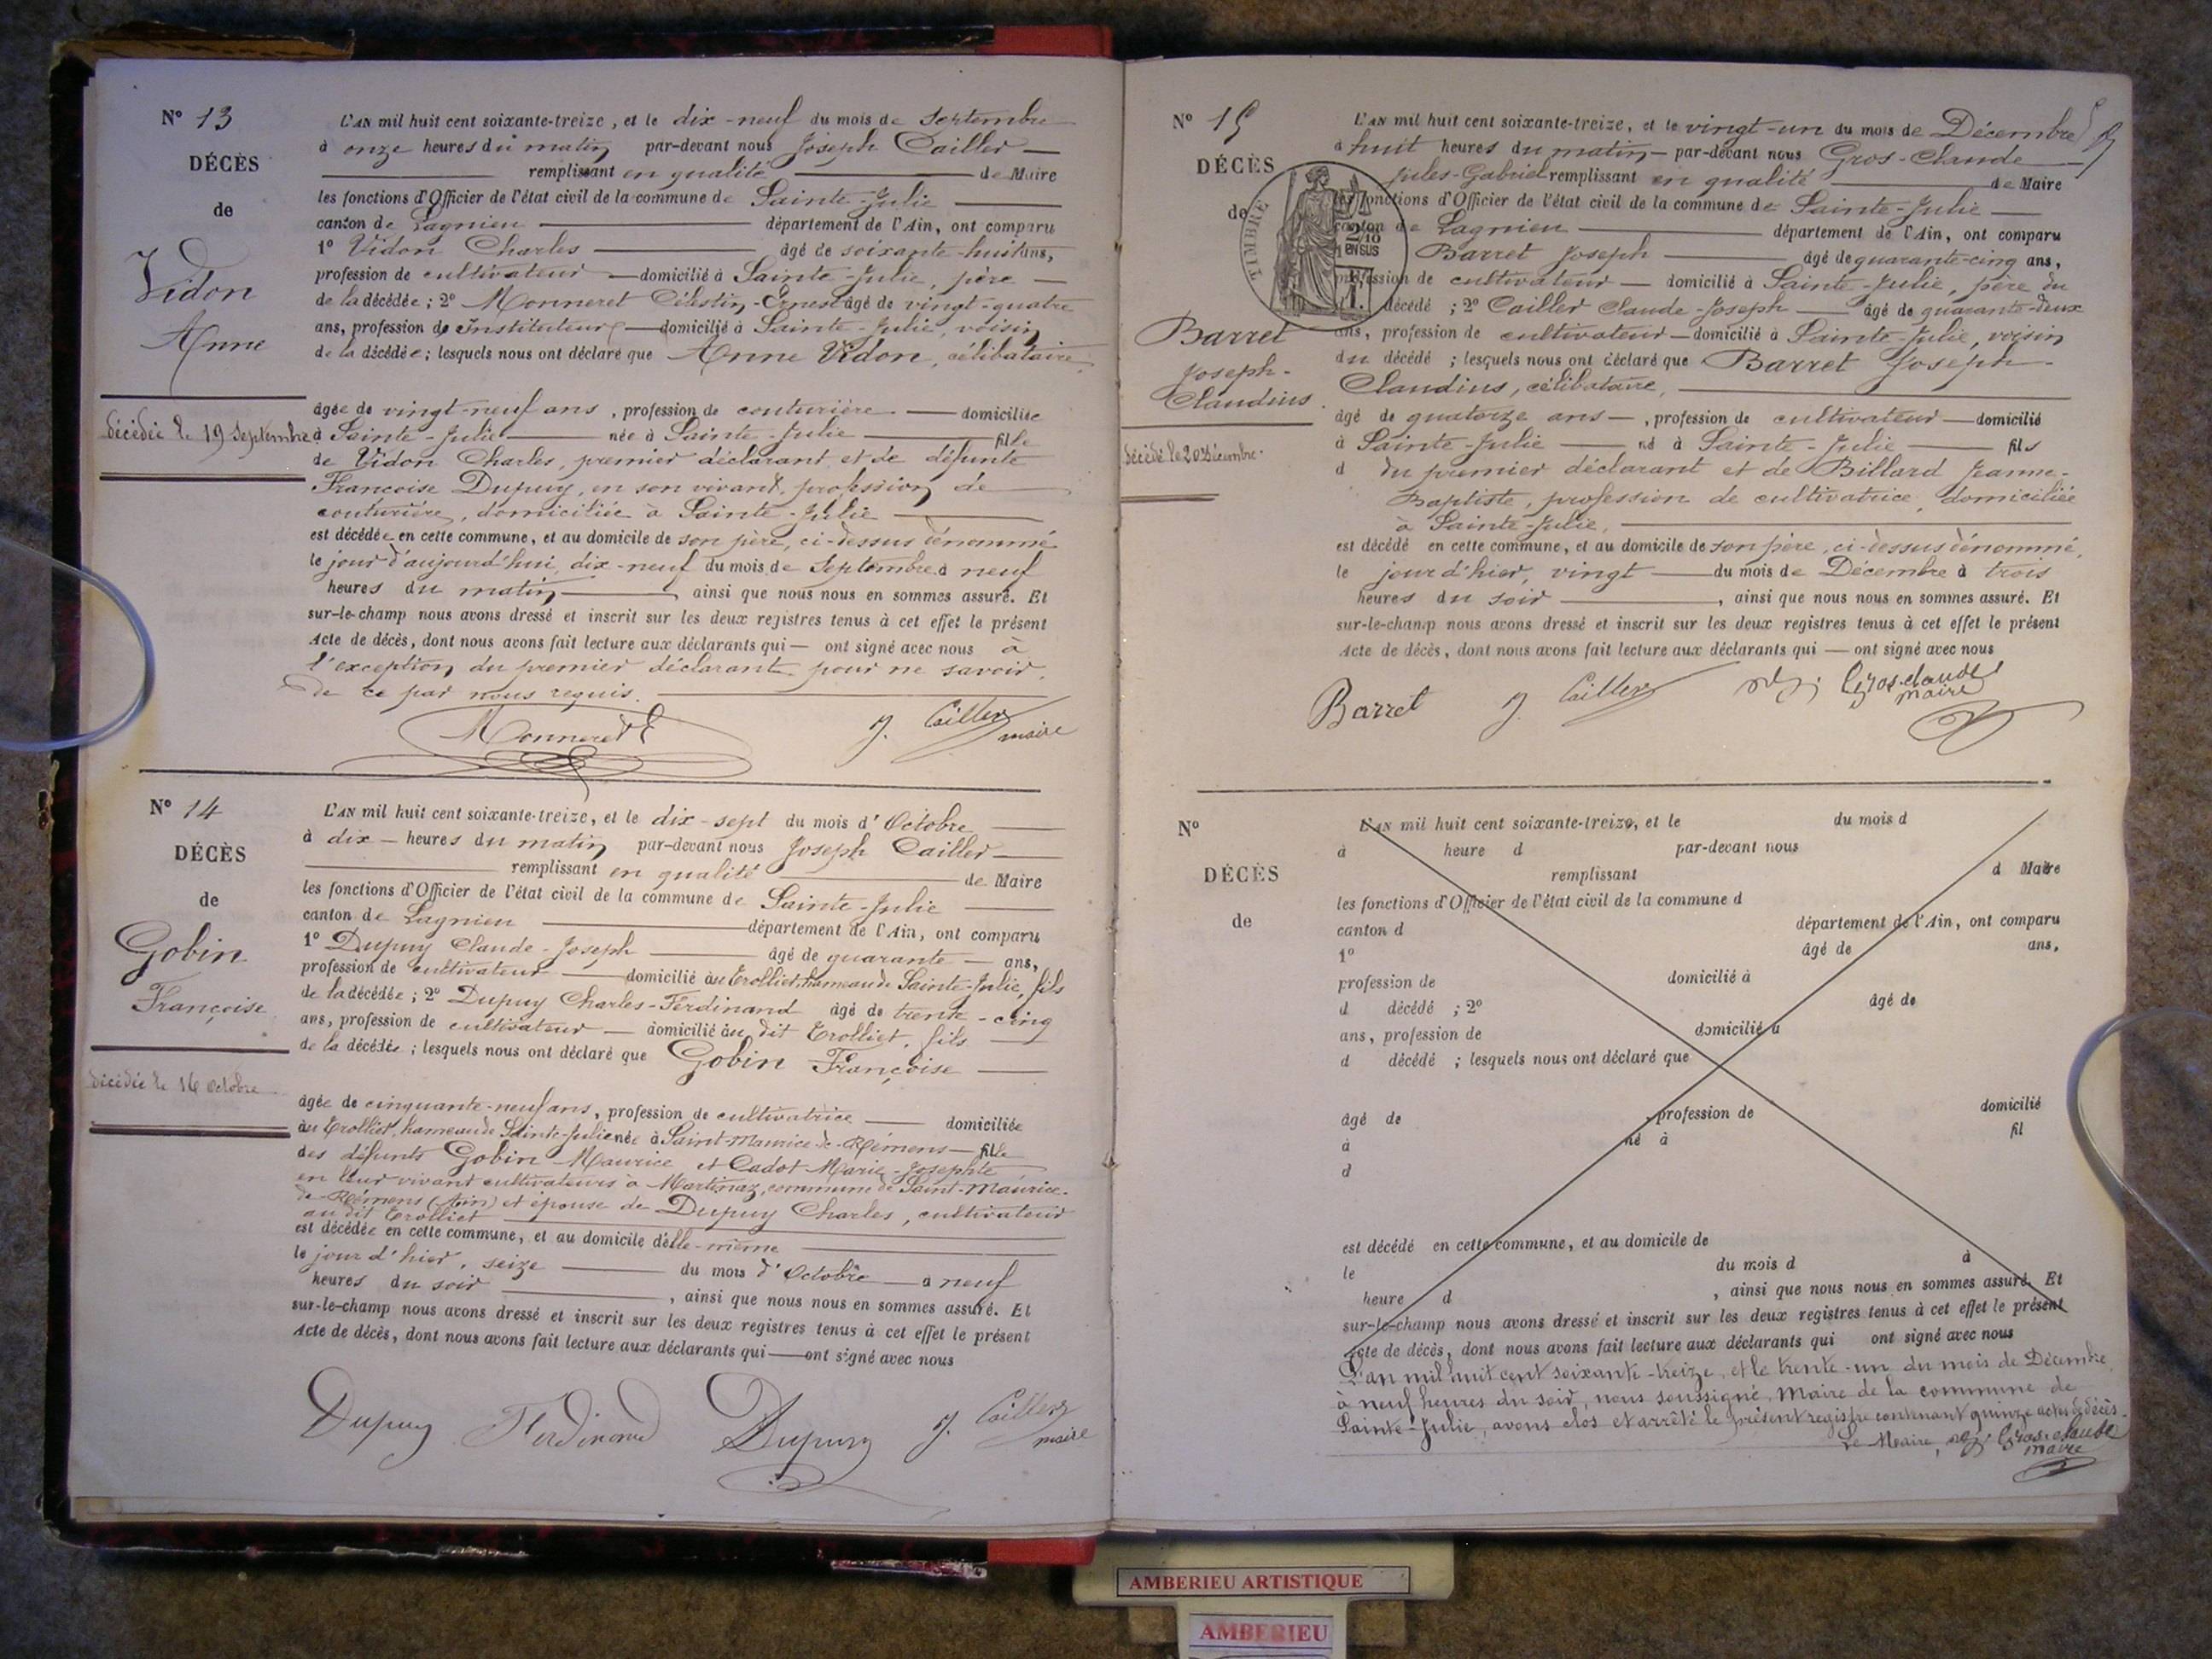 N° 13
DÉCÈS
de
Vidon
Anne
décédée le 19 Septembre
L'AN mil huit cent soixante-treize, et le dix-neuf du mois de Septembre
à onze heures du matin par-devant nous Joseph Cailler
remplissant en qualité de Maire
les fonctions d'Officier de l'état civil de la commune de Sainte-Julie
canton de Lagnieu département de l'Ain, ont comparu
1° Vidon Charles âgé de soixante-huit ans,
profession de cultivateur domicilié à Sainte-Julie, père
de la décédée ; 2° Monneret Célestin-Ernest âgé de vingt-quatre
ans, profession de Instituteur domicilié à Sainte-Julie, voisin
de la décédée ; lesquels nous ont déclaré que Anne Vidon, célibataire,
âgée de vingt-neuf ans, profession de couturière domiciliée
à Sainte-Julie née à Sainte-Julie fille
de Vidon Charles, premier déclarant et de défunte
Françoise Dupuy, en son vivant, profession de
couturière, domiciliée à Sainte-Julie
est décédée en cette commune, et au domicile de son père, ci-dessus dénommé
le jour d'aujourd'hui, dix-neuf du mois de Septembre à neuf
heures du matin ainsi que nous nous en sommes assuré. Et
sur-le-champ nous avons dressé et inscrit sur les deux registres tenus à cet effet le présent
Acte de décès, dont nous avons fait lecture aux déclarants qui — ont signé avec nous à
l'exception du premier déclarant pour ne savoir
de ce par nous requis.
Monneret J. Cailler
maire
N° 14
DÉCÈS
de
Gobin
Françoise
décédée le 16 Octobre
L'AN mil huit cent soixante-treize, et le dix-sept du mois d'Octobre
à dix — heures du matin par-devant nous Joseph Cailler
remplissant en qualité de Maire
les fonctions d'Officier de l'état civil de la commune de Sainte-Julie
canton de Lagnieu département de l'Ain, ont comparu
1° Dupuy Claude-Joseph âgé de quarante — ans,
profession de cultivateur domicilié au Trolliet, hameau de Sainte-Julie, fils
de la décédée ; 2° Dupuy Charles-Ferdinand âgé de trente-cinq
ans, profession de cultivateur — domicilié au dit Trolliet, fils
de la décédée ; lesquels nous ont déclaré que Gobin Françoise
âgée de cinquante-neuf ans, profession de cultivatrice domiciliée
au Trolliet, hameau de Sainte-Julie née à Saint-Maurice-de-Rémens — fille
des défunts Gobin Maurice et Cadot Marie-Josephte
en leur vivant cultivateurs à Martinaz, commune de Saint-Maurice-
de-Rémens (Ain) et épouse de Dupuy Charles, cultivateur
au dit Trolliet
est décédée en cette commune, et au domicile d'elle-même
le jour d'hier, seize du mois d'Octobre à neuf
heures du soir, ainsi que nous nous en sommes assuré. Et
sur-le-champ nous avons dressé et inscrit sur les deux registres tenus à cet effet le présent
Acte de décès, dont nous avons fait lecture aux déclarants qui — ont signé avec nous
Dupuy Ferdinand Dupuy J. Cailler
maire
N° 15
DÉCÈS
de
TIMBRE
2/10
EN SUS
Barret
Joseph-
Claudius
décédé le 20 Décembre.
L'AN mil huit cent soixante-treize, et le vingt-un du mois de Décembre
à huit heures du matin — par-devant nous Gros-Claude
Jules-Gabriel remplissant en qualité de Maire
les fonctions d'Officier de l'état civil de la commune de Sainte-Julie
canton de Lagnieu département de l'Ain, ont comparu
1 Barret Joseph âgé de quarante-cinq ans,
profession de cultivateur — domicilié à Sainte-Julie, père du
décédé ; 2° Cailler Claude-Joseph âgé de quarante-deux
ans, profession de cultivateur — domicilié à Sainte-Julie, voisin
du décédé ; lesquels nous ont déclaré que Barret Joseph-
Claudius, célibataire,
âgé de quatorze ans —, profession de cultivateur — domicilié
à Sainte-Julie né à Sainte-Julie fils
d du premier déclarant et de Billard Jeanne-
Baptiste, profession de cultivatrice, domiciliée
à Sainte-Julie,
est décédé en cette commune, et au domicile de son père, ci-dessus dénommé,
le jour d'hier, vingt du mois de Décembre à trois
heures du soir, ainsi que nous nous en sommes assuré. Et
sur-le-champ nous avons dressé et inscrit sur les deux registres tenus à cet effet le présent
Acte de décès, dont nous avons fait lecture aux déclarants qui — ont signé avec nous
Barret J. Cailler Gros-claude
maire
N°
DÉCÈS
de
L'AN mil huit cent soixante-treize, et le du mois d
à heure d par-devant nous
remplissant d Maire
les fonctions d'Officier de l'état civil de la commune d
canton d département de l'Ain, ont comparu
1° âgé de ans,
profession de domicilié à
d décédé ; 2° âgé de
ans, profession de domicilié à
d décédé ; lesquels nous ont déclaré que
âgé de , profession de domicilié
à né à fil
d
est décédé en cette commune, et au domicile de
le du mois d à
heure d , ainsi que nous nous en sommes assuré. Et
sur-le-champ nous avons dressé et inscrit sur les deux registres tenus à cet effet le présent
Acte de décès, dont nous avons fait lecture aux déclarants qui ont signé avec nous
L'an mil huit cent soixante-treize, et le trente-un du mois de Décembre
à neuf heures du soir, nous soussigné, Maire de la commune de
Sainte-Julie, avons clos et arrêté le présent registre contenant quinze actes de décès.
Le Maire, Gros-claude
maire
AMBERIEU ARTISTIQUE
AMBERIEU